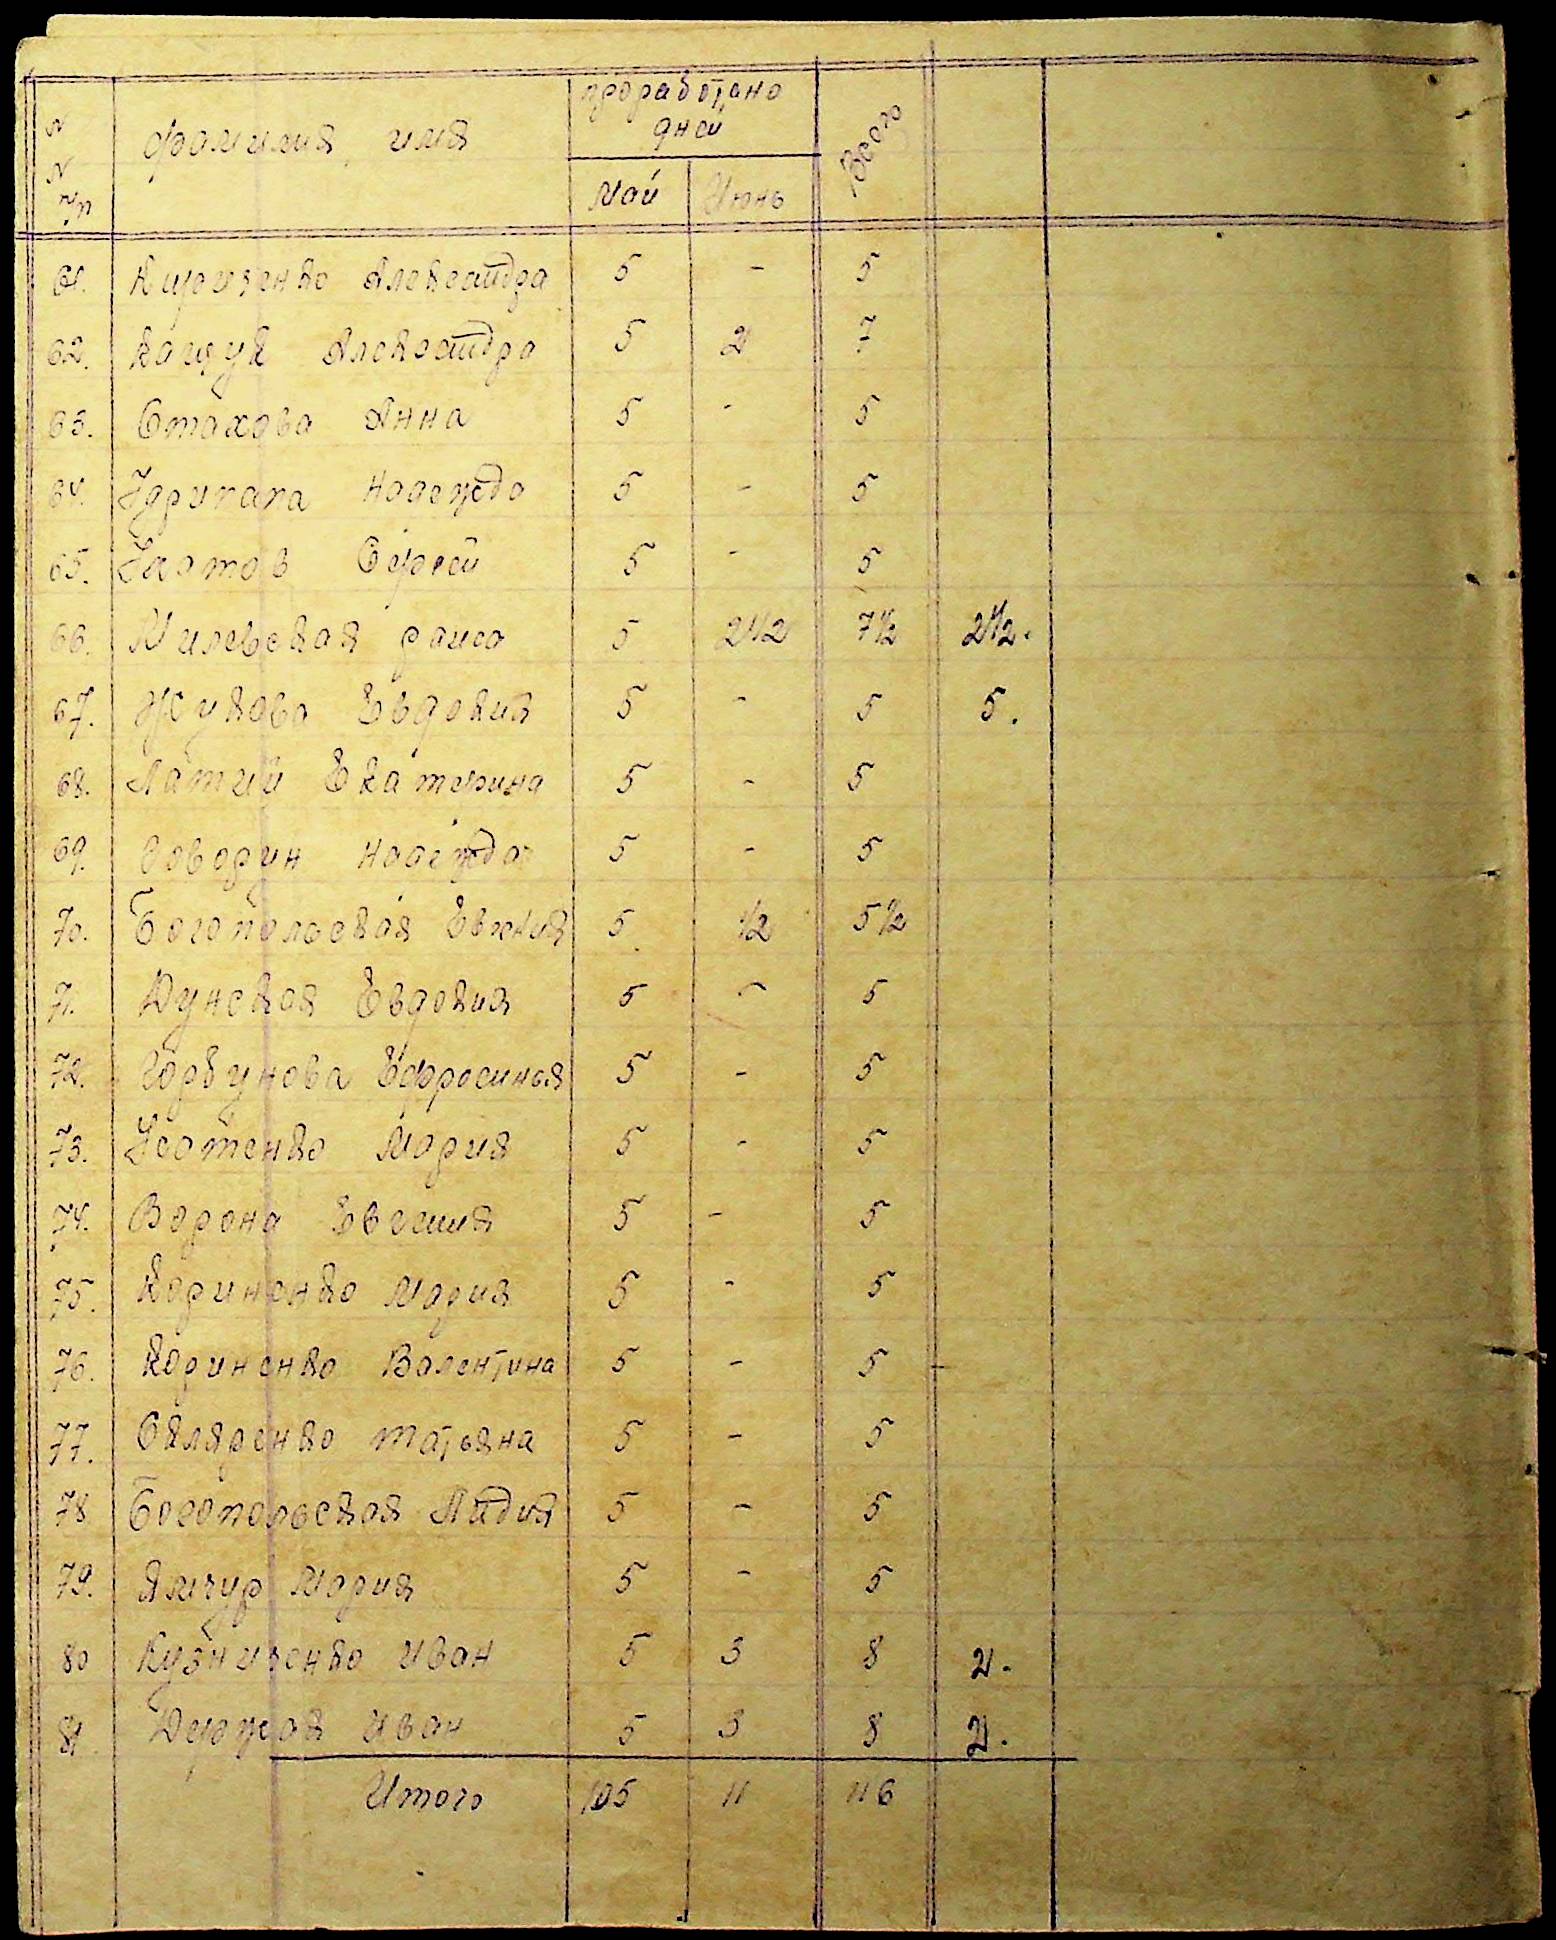 N N п/п фамилия, имя проработано дней Всего
Май Июнь
61. Кириченко Александра 5 - 5
62. Кащук Александра 5 2 7
63. Стахова Анна 5 - 5
64. Надежда 5 - 5
65. Сергей 5 - 5
66. Милевская раиса 5 2 1/2 7 1/2 2 1/2.
67. Жукова Евдокия 5 - 5 5.
68. Латий Екатерина 5 - 5
69. Говорун Надежда 5 - 5
70. Богопольская Евгения 5 1/2 5 1/2
71. Дунская Евдокия 5 - 5
72. Горбунова Ефросинья 5 - 5
73. Мария 5 - 5
74. Ворона Евгения 5 - 5
75. Кориненко Мария 5 - 5
76. Кориненко Валентина 5 - 5
77. Скляренко татьяна 5 - 5
78 Богопольская Лидия 5 - 5
79. Ямчур Мария 5 - 5
80 Кузниченко Иван 5 3 8 2.
81. Иван 5 3 8 2.
Итого 105 11 116